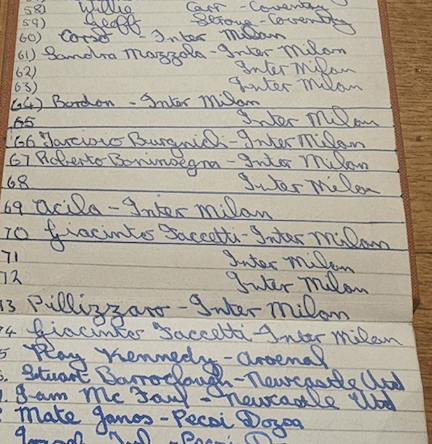 58) Willie Carr - Coventry
59) Geoff Strong - Coventry
60) Corso - Inter Milan
61) Sandra Mazzola - Inter Milan
62) Inter Milan
63) Inter Milan
64) Bordon - Inter Milan
65 Inter Milan
66 Tarcisio Burgnich - Inter Milan
67 Roberto Boninsegna - Inter Milan
68 Inter Milan
69 Acila - Inter Milan
70 Giacinto Faccetti - Inter Milan
71 Inter Milan
72 Inter Milan
73 Pillizzaro - Inter Milan
74 Giacinto Faccetti - Inter Milan
5 Ray Kennedy - Arsenal
6. Stuart Barroclough - Newcastle Utd
7. I-am Mc Faul - Newcastle Utd
Mate Janos - Pecsi Dozsa